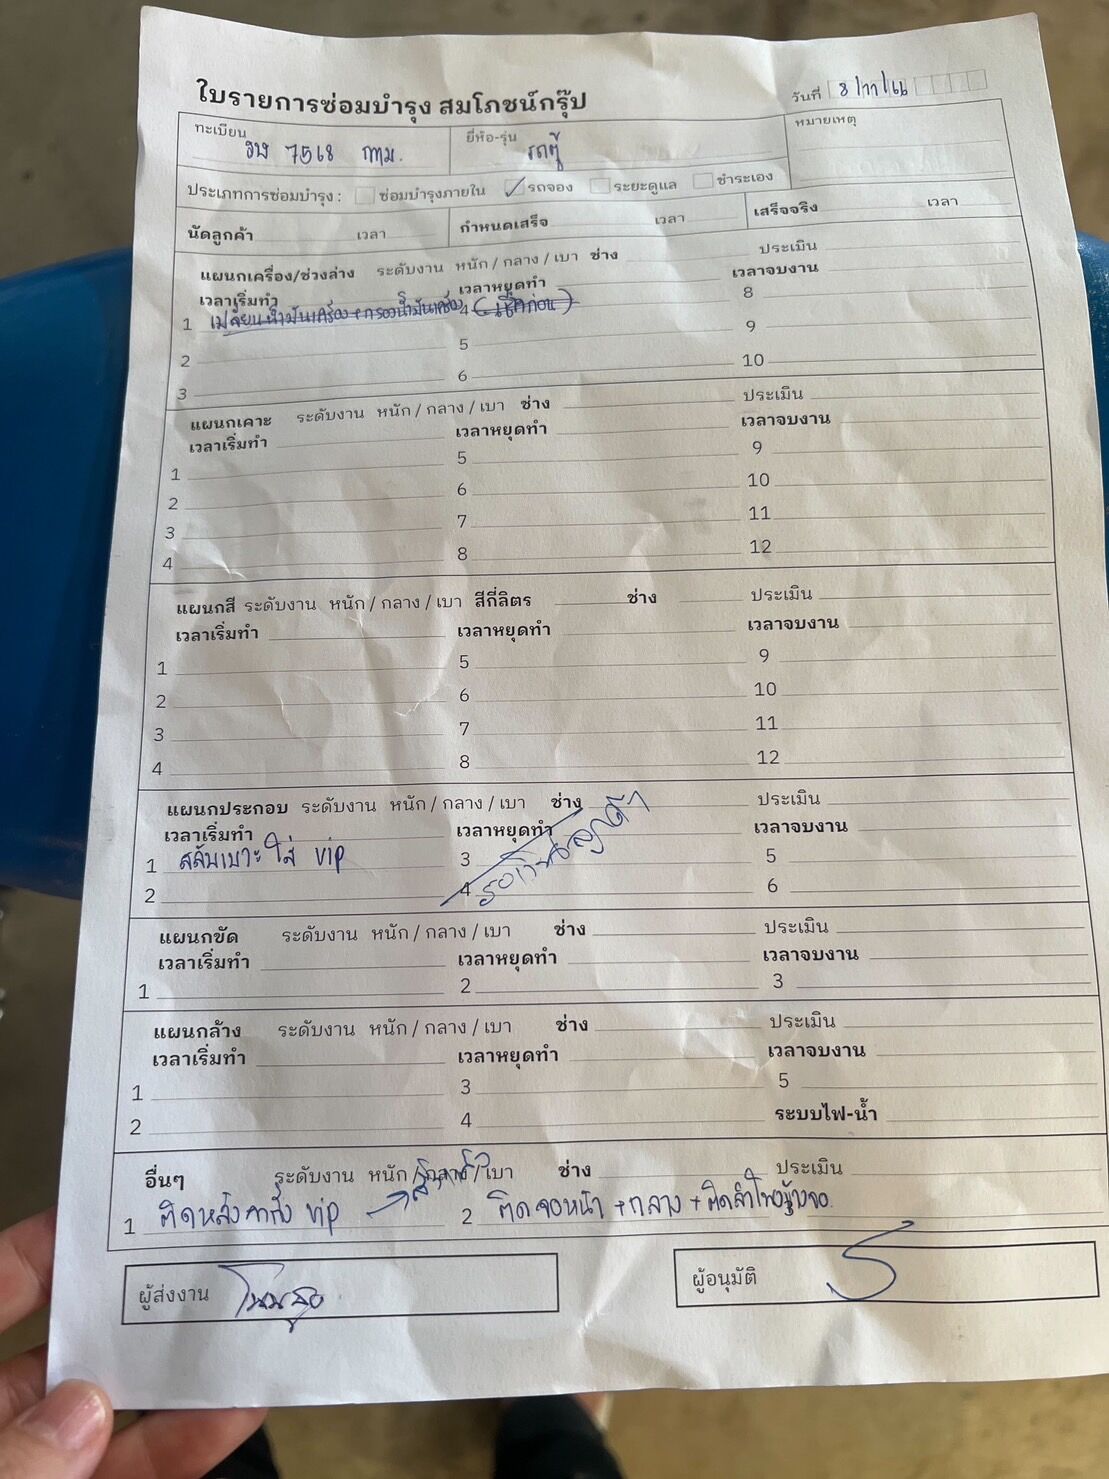 ใบรายการซ่อมบำรุง สมโภชน์กรุ๊ป
วันที่ 8/11/66
ทะเบียน 7568 กทม.
ยี่ห้อ-รุ่น รถตู้
หมายเหตุ
ประเภทการซ่อมบำรุง : ซ่อมบำรุงภายใน รถจอง ระยะดูแล ชำระเอง
นัดลูกค้า เวลา กำหนดเสร็จ เวลา เสร็จจริง เวลา
แผนกเครื่อง/ช่วงล่าง ระดับงาน หนัก / กลาง / เบา ช่าง ประเมิน
เวลาเริ่มทำ เวลาหยุดทำ เวลาจบงาน
1 เปลี่ยนน้ำมันเครื่อง+กรองน้ำมันเครื่อง 4 (เช็คก่อน) 8
2 5 9
3 6 10
แผนกเคาะ ระดับงาน หนัก / กลาง / เบา ช่าง ประเมิน
เวลาเริ่มทำ เวลาหยุดทำ เวลาจบงาน
1 5 9
2 6 10
3 7 11
4 8 12
แผนกสี ระดับงาน หนัก / กลาง / เบา สีกี่ลิตร ช่าง ประเมิน
เวลาเริ่มทำ เวลาหยุดทำ เวลาจบงาน
1 5 9
2 6 10
3 7 11
4 8 12
แผนกประกอบ ระดับงาน หนัก / กลาง / เบา ช่าง ประเมิน
เวลาเริ่มทำ เวลาหยุดทำ เวลาจบงาน
1 สลับเบาะใส่ vip 3 5
2 4 6
แผนกขัด ระดับงาน หนัก / กลาง / เบา ช่าง ประเมิน
เวลาเริ่มทำ เวลาหยุดทำ เวลาจบงาน
1 2 3
แผนกล้าง ระดับงาน หนัก / กลาง / เบา ช่าง ประเมิน
เวลาเริ่มทำ เวลาหยุดทำ เวลาจบงาน
1 3 5
2 4 ระบบไฟ-น้ำ
อื่นๆ ระดับงาน หนัก / กลาง / เบา ช่าง ประเมิน
1 ติดหลังคาทั้ง vip 2 ติดจอหน้า +กลาง +ติดลำโพงข้างจอ
ผู้ส่งงาน
ผู้อนุมัติ